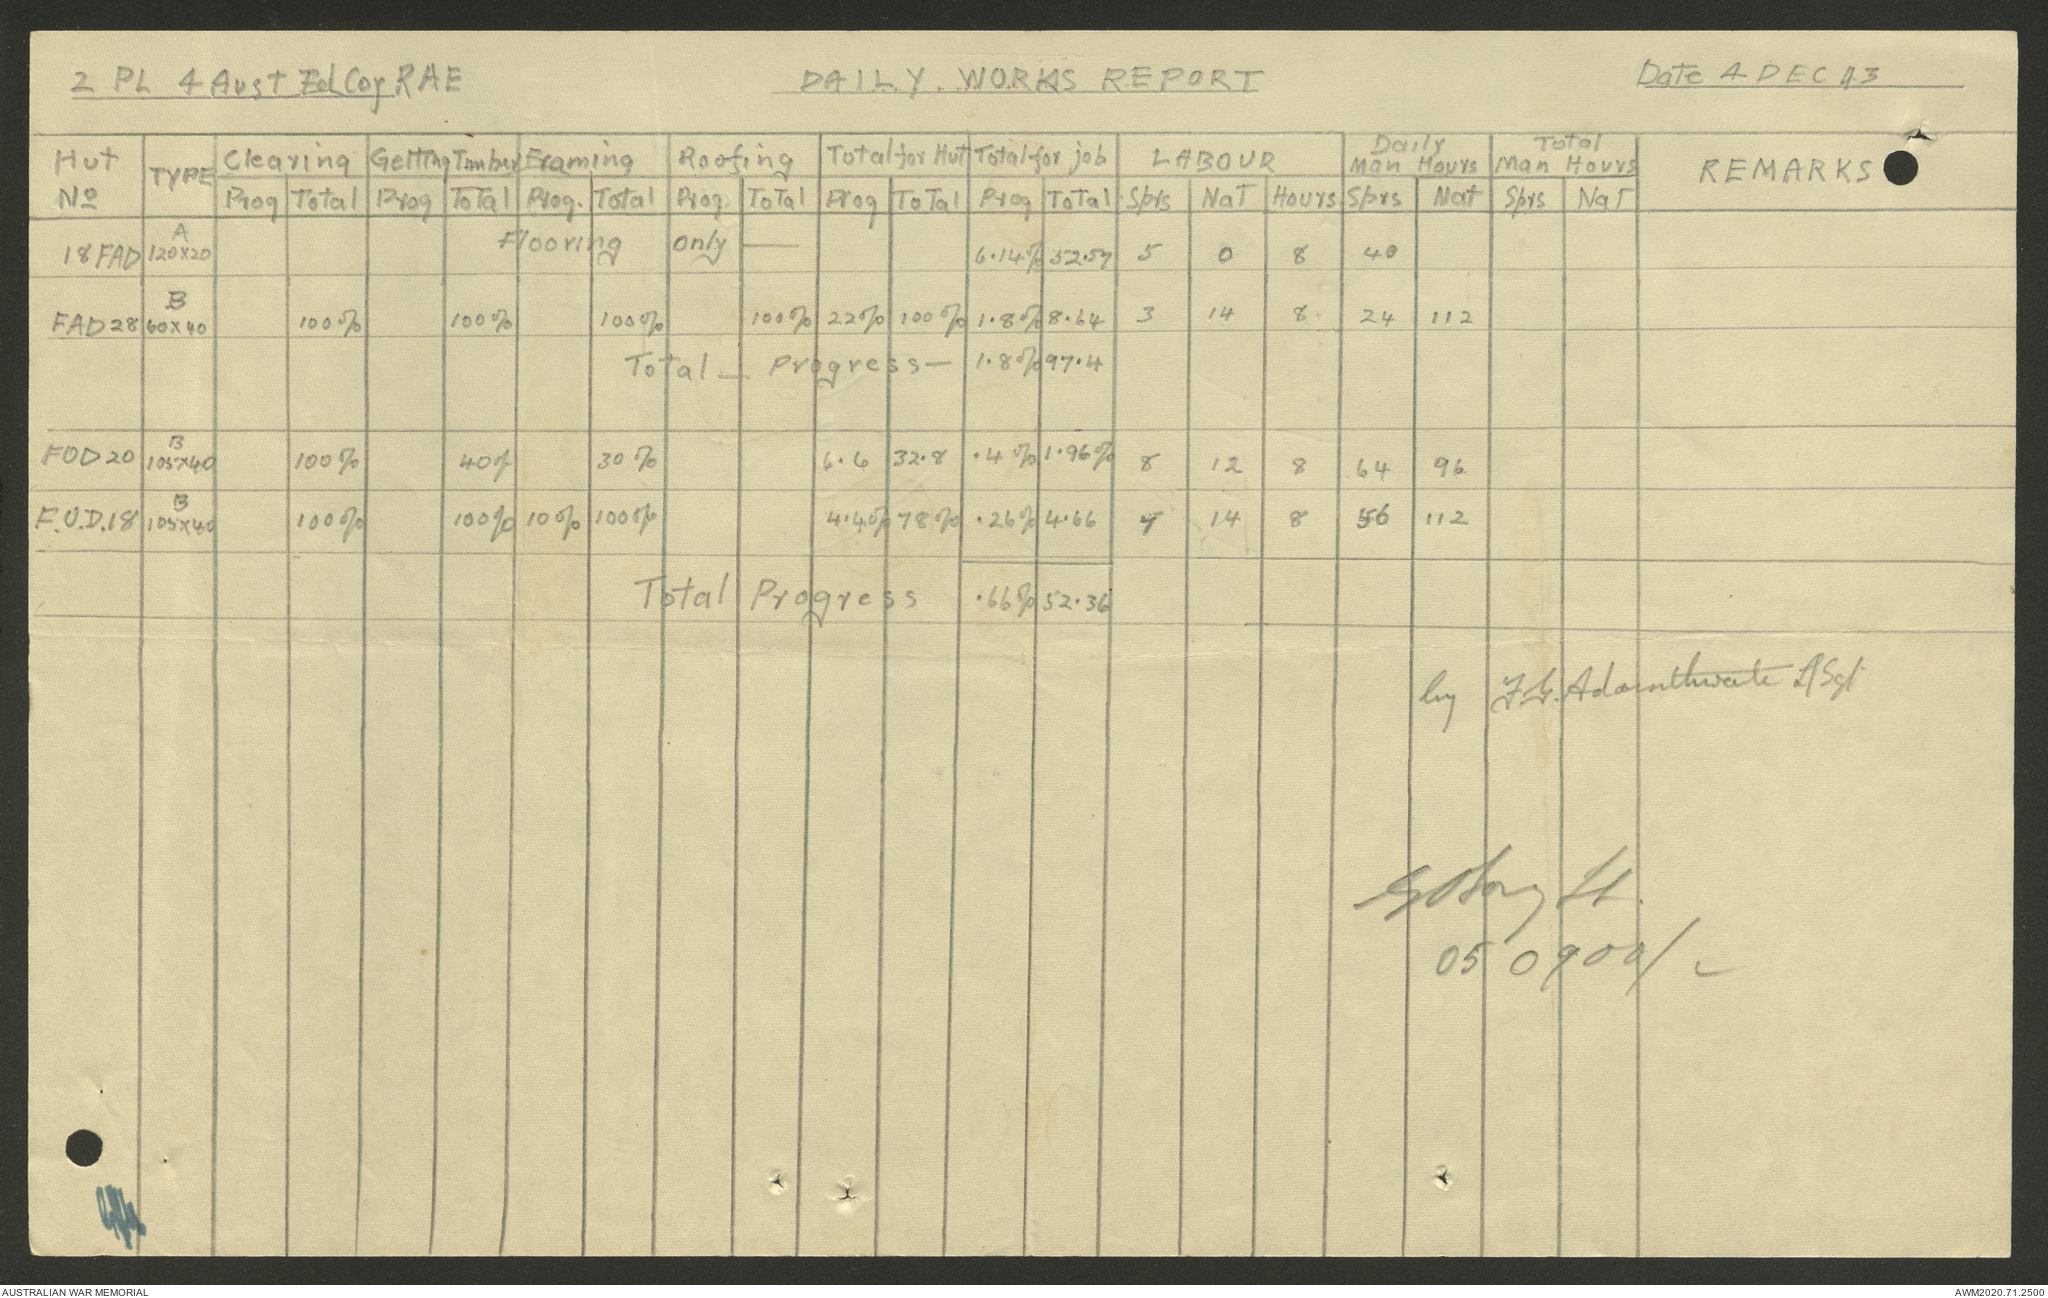 2 PL 4 Aust Fd Coy RAE DAILY WORKS REPORT Date 4 DEC 43
Hut No TYPE Clearing Getting Timber Framing Roofing Total for Hut Total for job LABOUR Daily Man Hours Total Man Hours REMARKS
Prog Total Prog Total Prog. Total Prog. Total Prog Total Prog Total Sprs Nat Hours Sprs Nat Sprs Nat
18 FAD A 120x20 Flooring only — 6.14% 52.57 5 0 8 40
FAD 28 B 60x40 100% 100% 100% 100% 22% 100% 1.8% 8.64 3 14 8 24 112
Total — Progress — 1.8% 97.4
FOD 20 B 105x40 100% 40% 30% 6.6 32.8 .4% 1.96% 8 12 8 64 96
F.O.D. 18 B 105x40 100% 100% 10% 100% 4.4% 78% .26% 4.66 7 14 8 56 112
Total Progress .66% 52.36
by F.G. Adamthwaite L/Sgt
Lt.
05 0900/
AUSTRALIAN WAR MEMORIAL AWM2020.71.2500